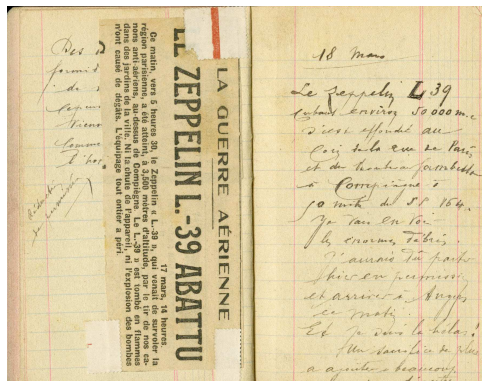 LA GUERRE AÉRIENNE
LE ZEPPELIN L.-39 ABATTU
17 mars, 14 heures.
Ce matin, vers 5 heures 30, le Zeppelin « L.-39 », qui venait de survoler la
région parisienne, a été atteint, à 3,500 mètres d'altitude, par le tir de nos ca-
nons anti-aériens, au-dessus de Compiègne. Le L.-39 » est tombé en flammes
dans des jardins de la ville. Ni la chute de l'appareil, ni l'explosion des bombes
n'ont causé de dégâts. L'équipage tout entier a péri.
Des
formid
18 Mars
Le Zeppelin L 39
environ 50000 m.c
s'est effondré au
coin de la rue de Paris
et du
à Compiègne à
50 mts du S.S 164.
les énormes débris.
J'aurais dû partir
hier en permission
et arriver à Angers
ce matin.
Et je suis là hélas!
Un sacrifice de plus
à ajouter à beaucoup